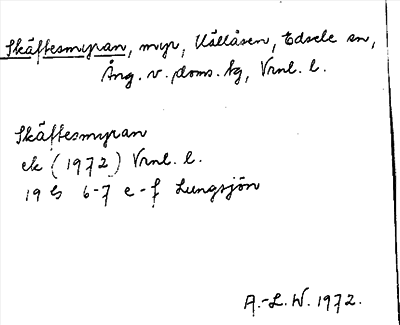 Skäftesmyran, myr, Källåsen, Edsele sn,
Ång. v. doms. hg, Vrnl. l.
Skäftesmyran
ek (1972) Vrnl. l.
19 G 6-7 e-f Lungsjön
A.-L. W. 1972.